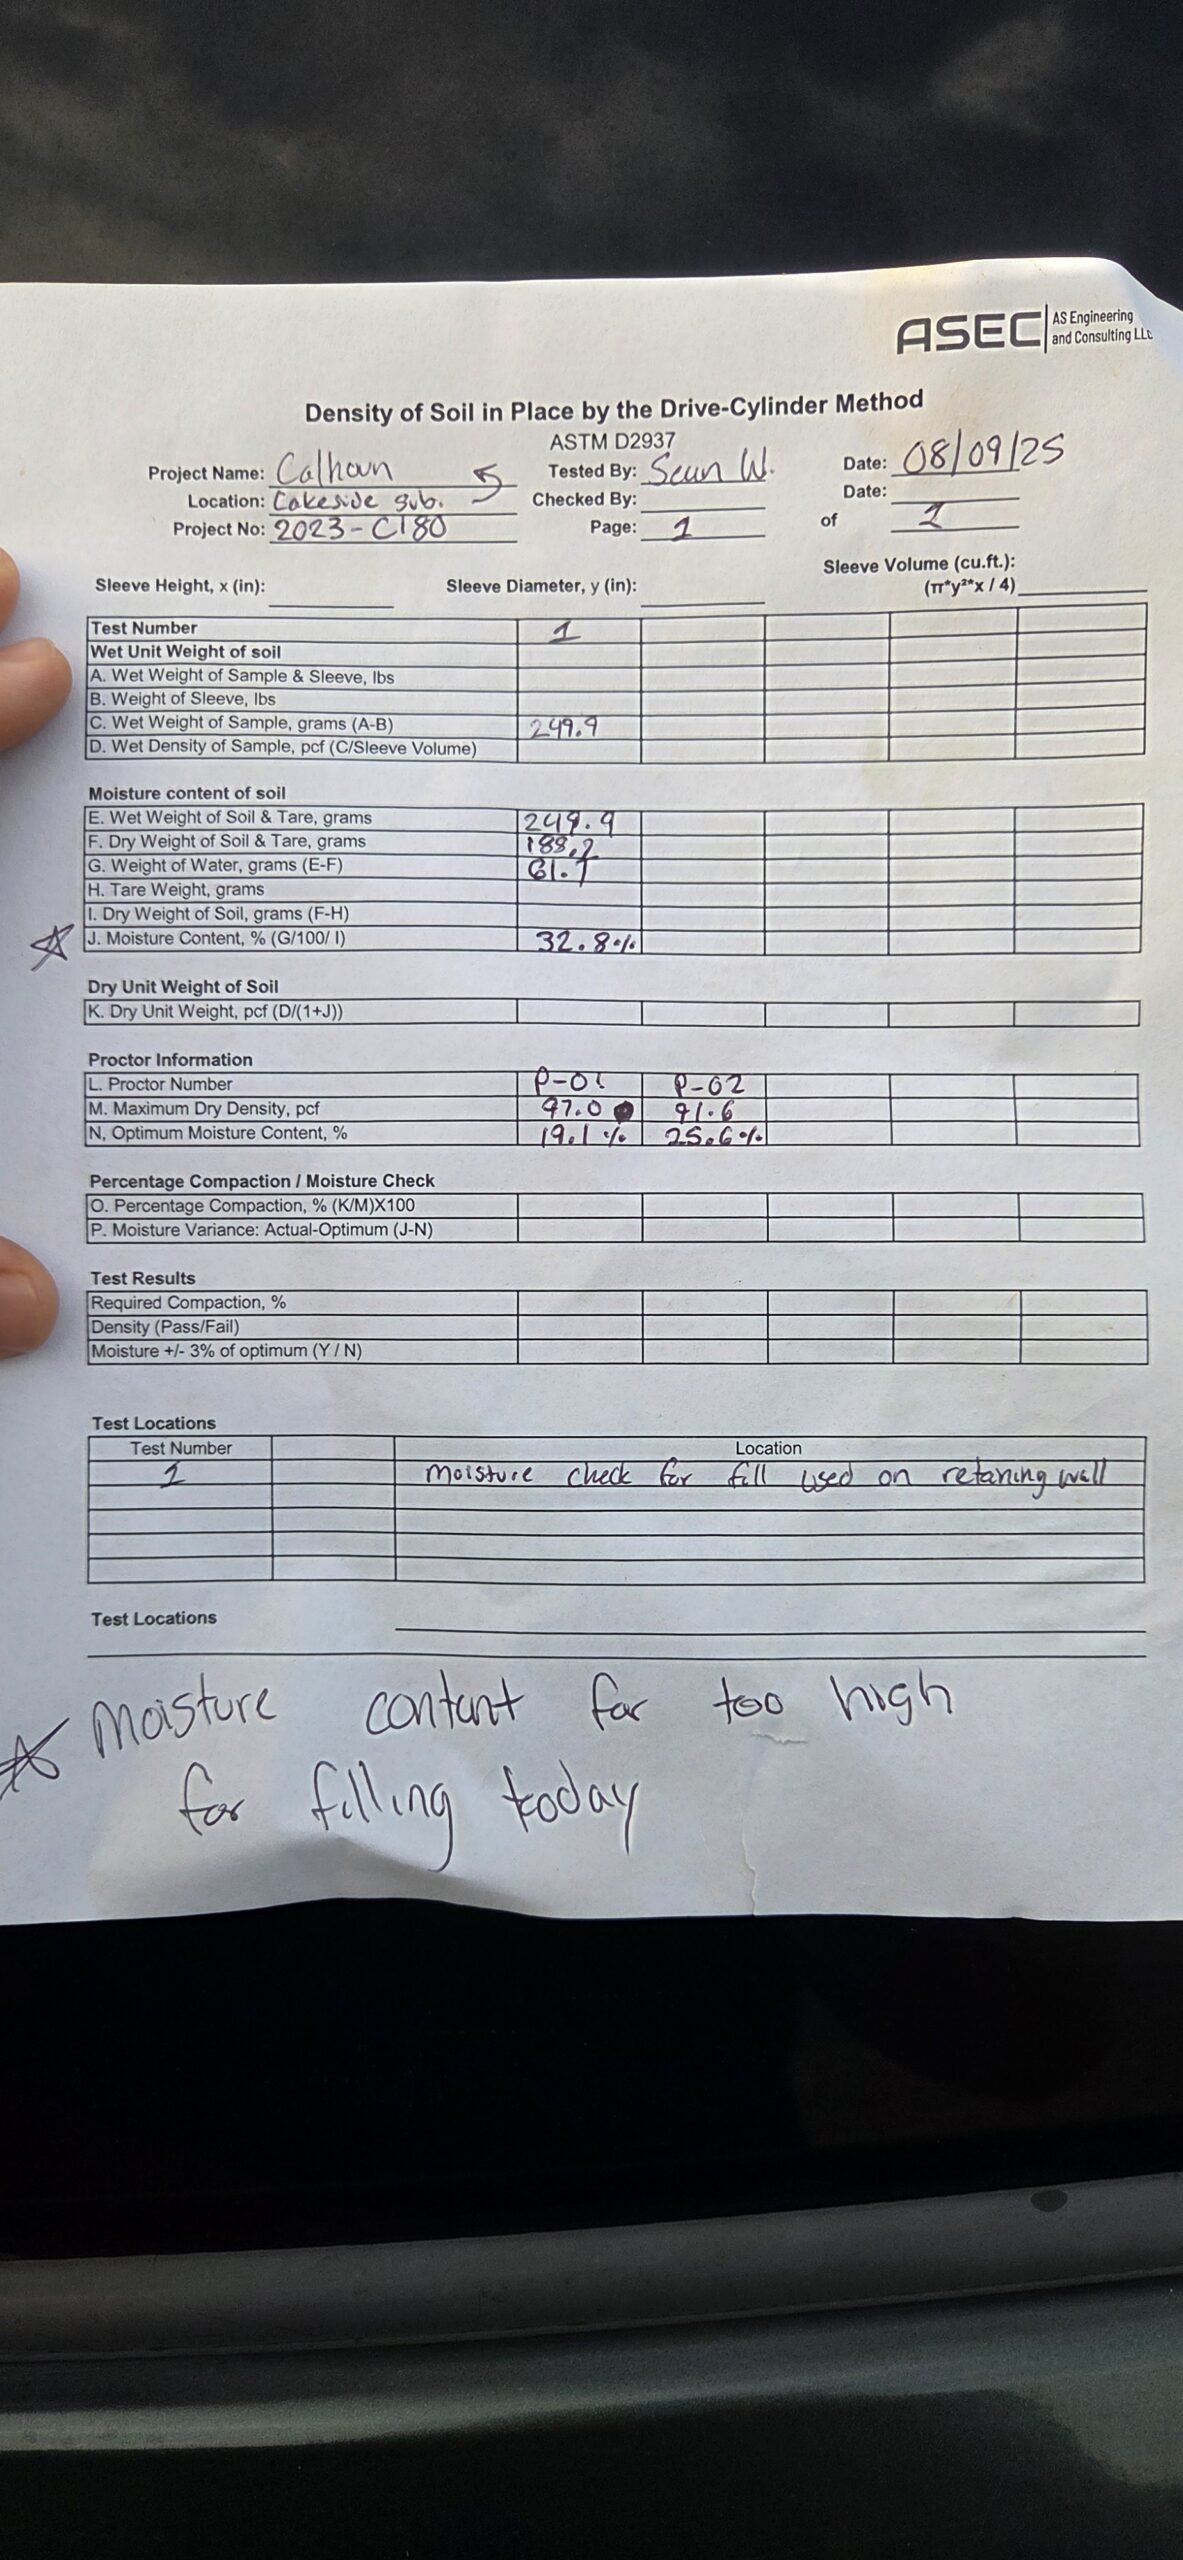 ASEC
AS Engineering
and Consulting LLC
Density of Soil in Place by the Drive-Cylinder Method
ASTM D2937
Project Name: Calhoun
Tested By: Sean W.
Date: 08/09/25
Location: Lakeside sub.
Checked By:
Date:
Project No: 2023-C180
Page: 1
of 1
Sleeve Height, x (in):
Sleeve Diameter, y (in):
Sleeve Volume (cu.ft.):
(π*y²*x / 4)
Test Number 1
Wet Unit Weight of soil
A. Wet Weight of Sample & Sleeve, lbs
B. Weight of Sleeve, lbs
C. Wet Weight of Sample, grams (A-B) 249.9
D. Wet Density of Sample, pcf (C/Sleeve Volume)
Moisture content of soil
E. Wet Weight of Soil & Tare, grams 249.9
F. Dry Weight of Soil & Tare, grams 188.2
G. Weight of Water, grams (E-F) 61.7
H. Tare Weight, grams
I. Dry Weight of Soil, grams (F-H)
J. Moisture Content, % (G/100/ I) 32.8%
Dry Unit Weight of Soil
K. Dry Unit Weight, pcf (D/(1+J))
Proctor Information
L. Proctor Number P-01 P-02
M. Maximum Dry Density, pcf 97.0 91.6
N, Optimum Moisture Content, % 19.1% 25.6%
Percentage Compaction / Moisture Check
O. Percentage Compaction, % (K/M)X100
P. Moisture Variance: Actual-Optimum (J-N)
Test Results
Required Compaction, %
Density (Pass/Fail)
Moisture +/- 3% of optimum (Y / N)
Test Locations
Test Number Location
1 moisture check for fill used on retaning wall
Test Locations
Moisture content far too high
for filling today